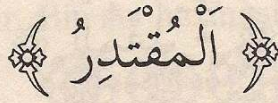 اَلْمُقْتَدِرُ